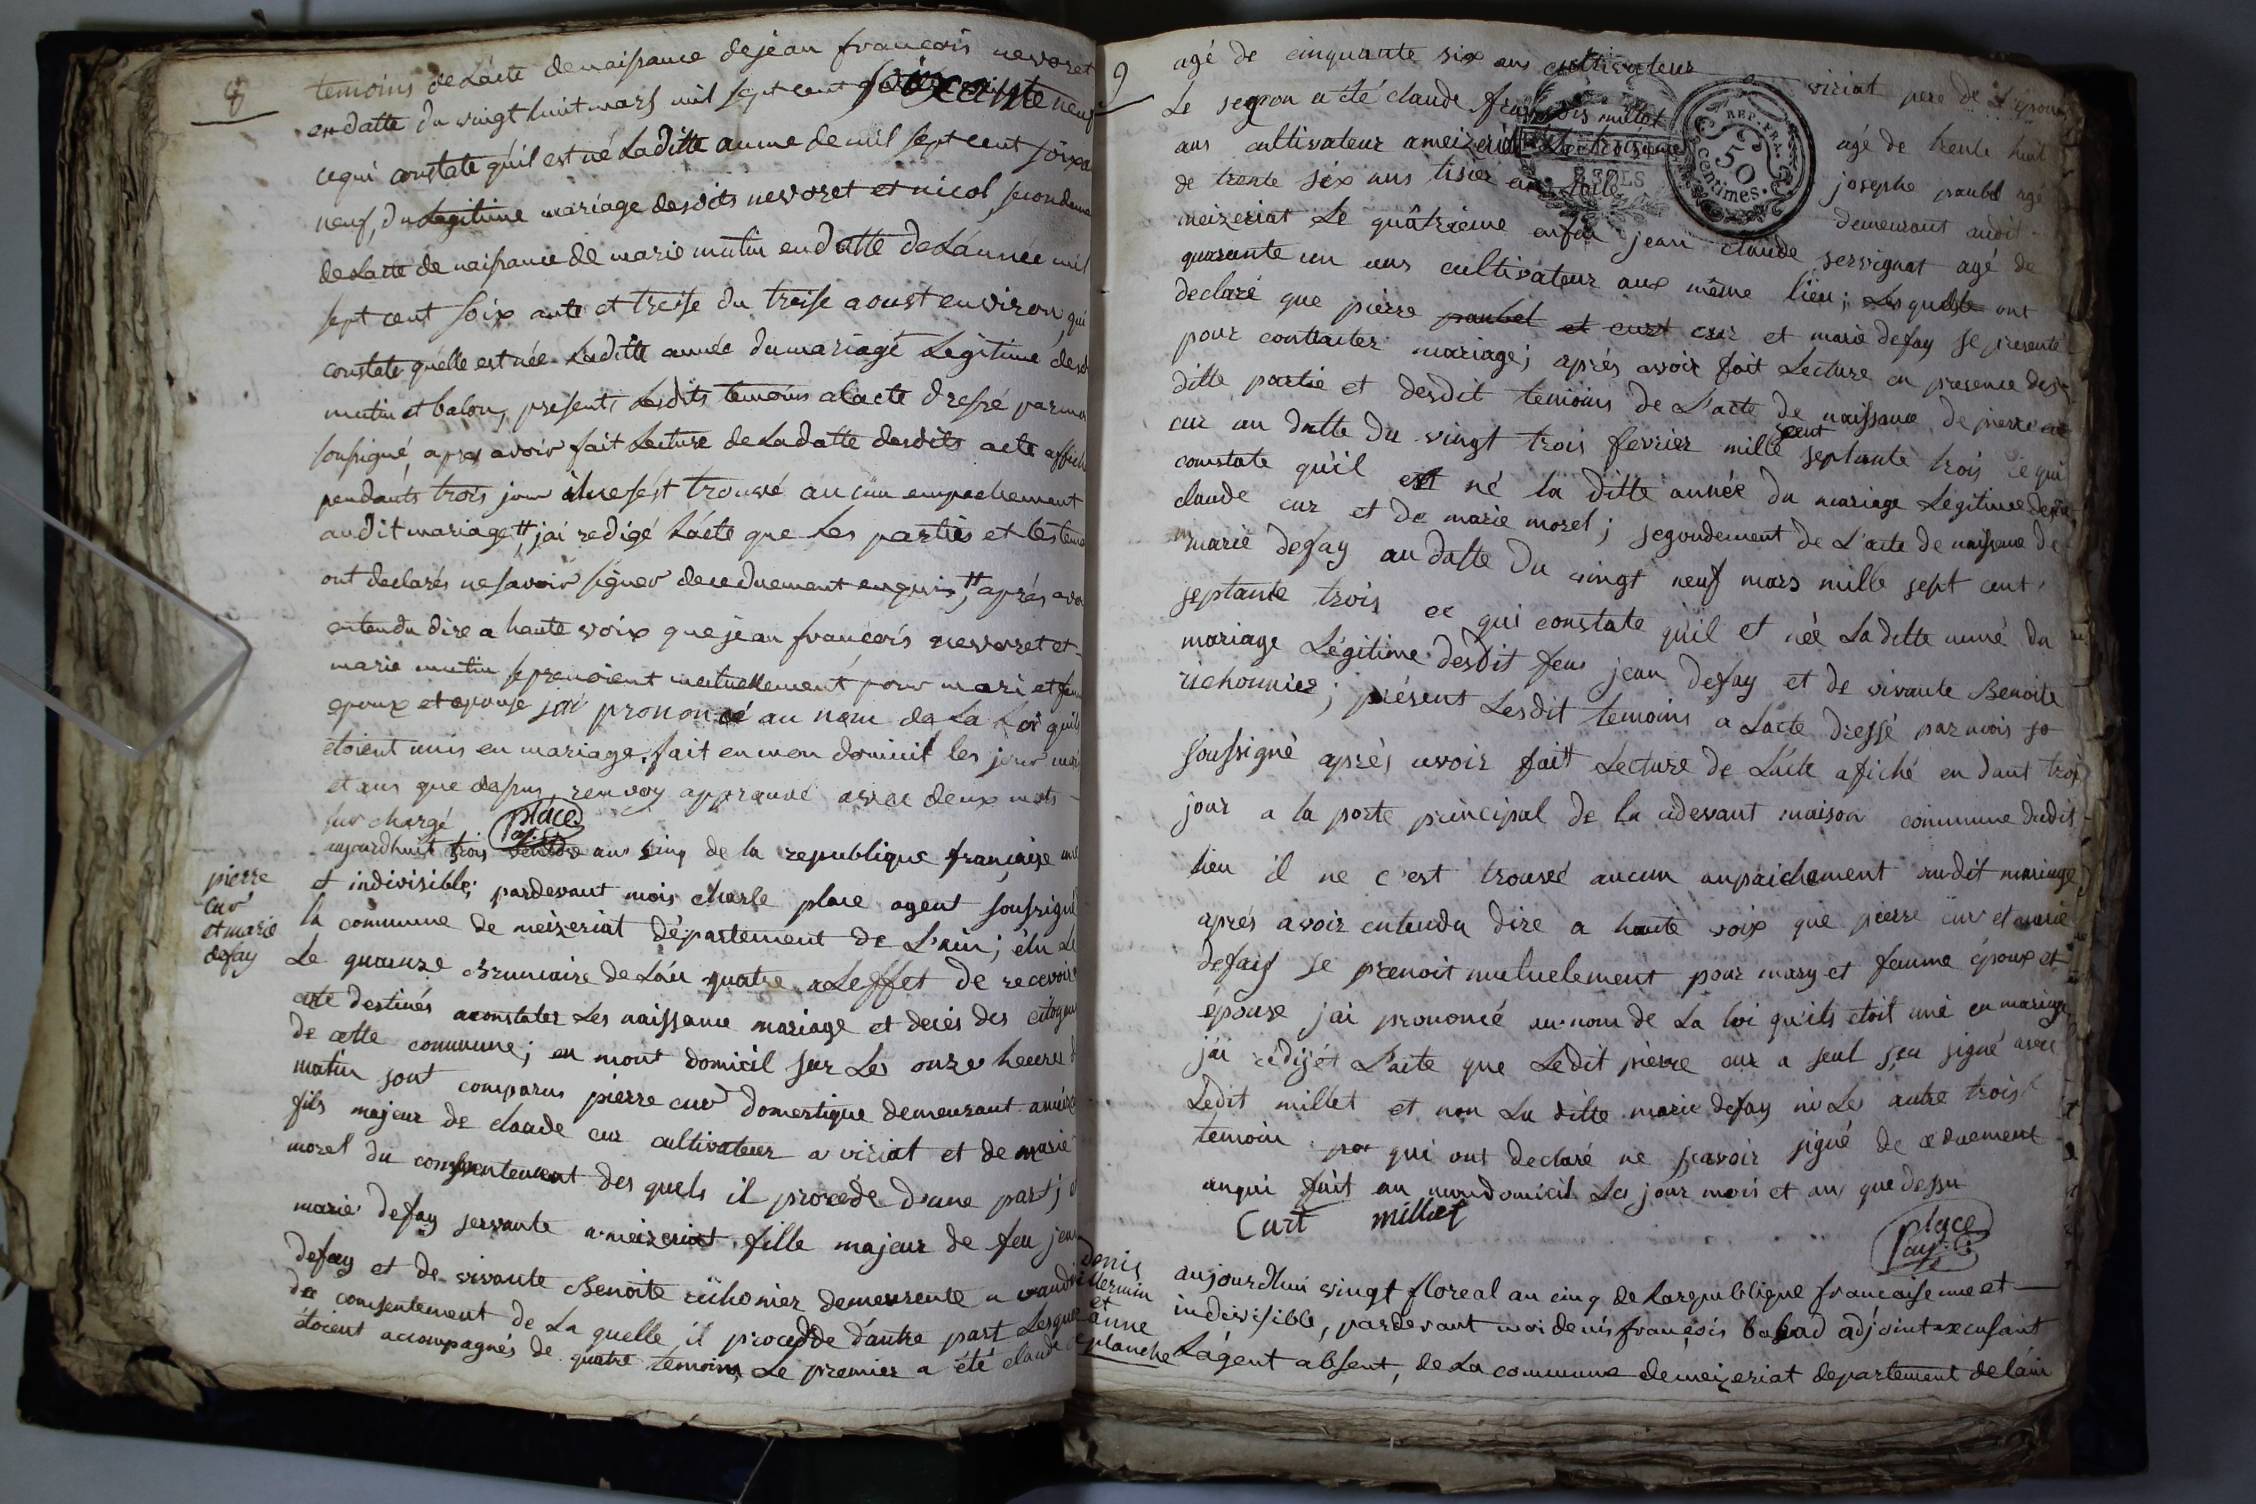 8
temoins de Lácte denaissance dejean francois nevoret
en datte du vingt huit mars mil sept cent soixante neuf
cequi constate qúil est né Laditte anné de mil sept cent soixan
neuf, du Legitime mariage desdits nevoret et nicol, secondeme
de Lacte de naissance de marie mutin en datte de Lánnée mil
sept cent soix ante et treise du treise aoust environ, qui
constate quélle est née Laditte année du mariage Legitime desd
mutin et balon, presents Lesdits temoins a lacte dressé par moi
soussigné, apres avoir fait Lecture de Ladatte desdits acte affich
pendants trois jour il ne sést trouvé aucun empechement
audit mariage, jai redigé Lácte que Les parties et les temo
ont declarés ne savoir signer de ce duement enquis, aprés avoir
entendu dire a haute voix que jean francois nevoret et
marie mutin se prenoient mutuellement pour mari et fem
epoux et epouse jai prononcé au nom de La Loi quils
étoient unis en mariage. fait en mon domicil les jour mois
et ans que dessus, renvoy approuvé avec deux mots
sur chargé
place
ag.
pierre
cur
et marie
defay
aujourdhuit trois ventose an cinq de la republique française une
et indivisible; pardevant mois charle place agent soussigné
la commune de meizeriat département de L'ain; élu Le
Le quinze Brumaire de Lán quatre a Leffet de recevoir
acte destinés aconstater Les naissance mariage et decés des citoyens
de cette commune; en mont domicil sur Les onze heure d
matin sont comparus pierre cur domestique demeurant améz
fils majeur de claude cur cultivateur a viriat et de marie
morel du consentement des quels il procede d'une part; et
marie defay servante a meizeriat fille majeur de feu jean
defay et de vivante Benoite richonier demeurente a vand
de consentement de La quelle il procedde d'autre part Lesquel
étoient accompagnés de quatre temoins Le premier a été claude c
9
agé de cinquante six ans cultivateur viriat pere de L'epoux
Le segon a été claude françois millet agé de trente huit
ans cultivateur a meizeriat Le troisieme josephe paubel agé
de trente six ans tisier en toile demeurant audit
REP. FRA.
50
centimes.
meizeriat Le quâtrieme enfin jean claude servignat agé de
quarante un ans cultivateur aux même lieu; Lesquels ont
declaré que pierre paubel et curt cur et marie defay se presente
pour contracter mariage; aprés avoir fait Lecture en presence des
ditte partie et desdit temoins de L'acte de naissance de pierre
cur au datte du vingt trois fevrier mille sept cent septante trois ce qui
constate qu'il est né la ditte année du mariage Legitime desdit
claude cur et de marie morel; segondement de L'acte de naissance de
marie defay au datte du vingt neuf mars mille sept cent
septante trois ce qui constate qu'il et née La ditte anné du
mariage Légitime desdit feu jean defay et de vivante Benoite
richonnier; présent Lesdit temoins a Lacte dressé par mois so
soussigné aprés avoir fait Lecture de Lácte afiché en dant trois
jour a la porte principal de la cidevant maison commune dudit
lieu il ne c'est trouvé aucun anpaichement audit mariage
aprés avoir entendu dire a haute voix que pierre cur et marie
defay se prenoit mutuelement pour mary et femme époux et
épouse jai prononcé au nom de La loi qu'ils étoit uni en mariage
jai redigét L'acte que Ledit pierre cur a seul seu signé avec
Ledit millet et non La ditte marie defay ni Les autre trois
temoin qui ont declaré ne sçavoir signé de ce duement
anqui fait an mondomicil Les jour mois et an que dessu
Curt millet
place
ag.
denis
vermin
et
anne
planche
aujourdhui vingt floreal an cinq de Larepublique francaise une et
indivisible, pardevant moi denis françois babad adjoint excusant
Lágent absent, de La commune demeizeriat departement deláin